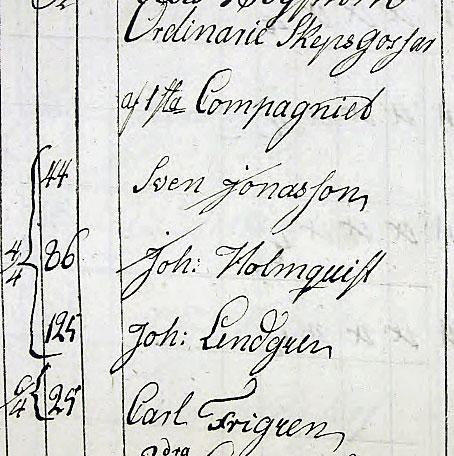 Ordinarie Skepsgossar
af 1sta Compagniet
44 Sven Jonasson
4/4 86 Joh: Holmquist
125 Joh: Lendgren
25 Carl Frigren
2dra